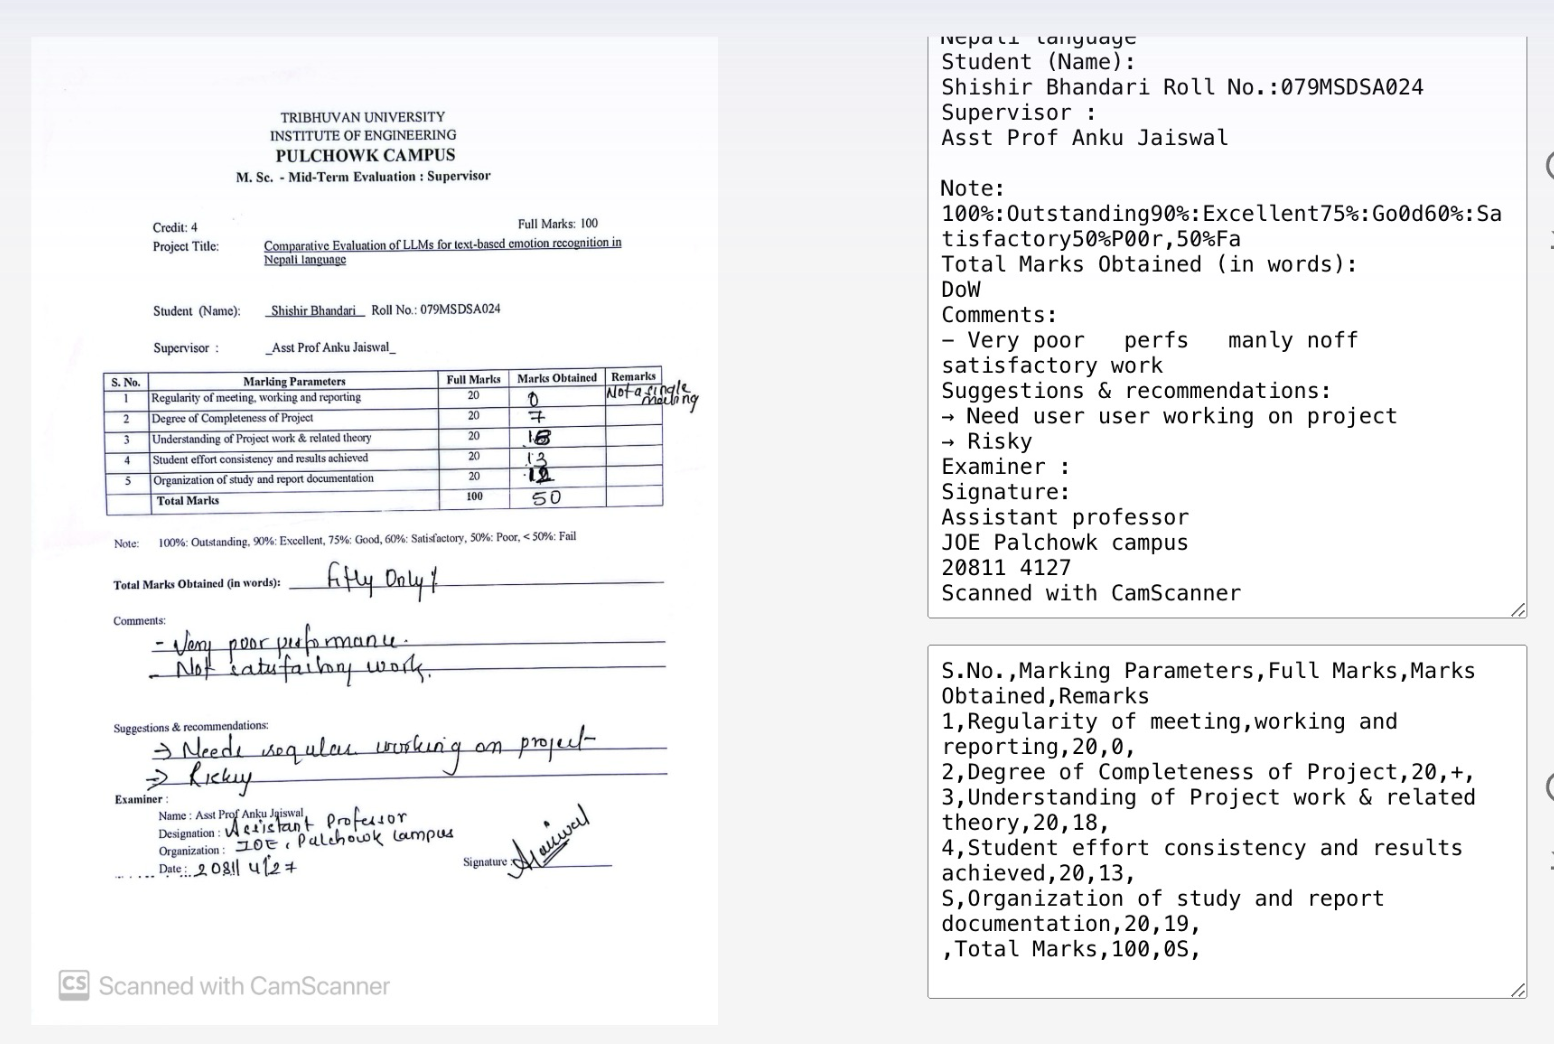 TRIBHUVAN UNIVERSITY
INSTITUTE OF ENGINEERING
PULCHOWK CAMPUS
M. Sc. - Mid-Term Evaluation : Supervisor
Credit: 4 Full Marks: 100
Project Title: Comparative Evaluation of LLMs for text-based emotion recognition in
Nepali language
Student (Name): _Shishir Bhandari_ Roll No.: 079MSDSA024
Supervisor : _Asst Prof Anku Jaiswal_
S. No. Marking Parameters Full Marks Marks Obtained Remarks
1 Regularity of meeting, working and reporting 20 0 Not a single meeting
2 Degree of Completeness of Project 20 7
3 Understanding of Project work & related theory 20
4 Student effort consistency and results achieved 20 13
5 Organization of study and report documentation 20
Total Marks 100 50
Note: 100%: Outstanding, 90%: Excellent, 75%: Good, 60%: Satisfactory, 50%: Poor, < 50%: Fail
Total Marks Obtained (in words): fifty Only
Comments:
- Very poor performance.
- Not satisfactory work.
Suggestions & recommendations:
→ Needs regular working on project
→ Risky
Examiner :
Name : Asst Prof Anku Jaiswal
Designation : Assistant Professor
Organization : IOE, Pulchowk Campus
Date : 2081/4/27
Signature :
CS Scanned with CamScanner
Nepali language
Student (Name):
Shishir Bhandari Roll No.:079MSDSA024
Supervisor :
Asst Prof Anku Jaiswal
Note:
100%:Outstanding90%:Excellent75%:Go0d60%:Sa
tisfactory50%P00r,50%Fa
Total Marks Obtained (in words):
DoW
Comments:
– Very poor perfs manly noff
satisfactory work
Suggestions & recommendations:
→ Need user user working on project
→ Risky
Examiner :
Signature:
Assistant professor
JOE Palchowk campus
20811 4127
Scanned with CamScanner
S.No.,Marking Parameters,Full Marks,Marks
Obtained,Remarks
1,Regularity of meeting,working and
reporting,20,0,
2,Degree of Completeness of Project,20,+,
3,Understanding of Project work & related
theory,20,18,
4,Student effort consistency and results
achieved,20,13,
S,Organization of study and report
documentation,20,19,
,Total Marks,100,0S,